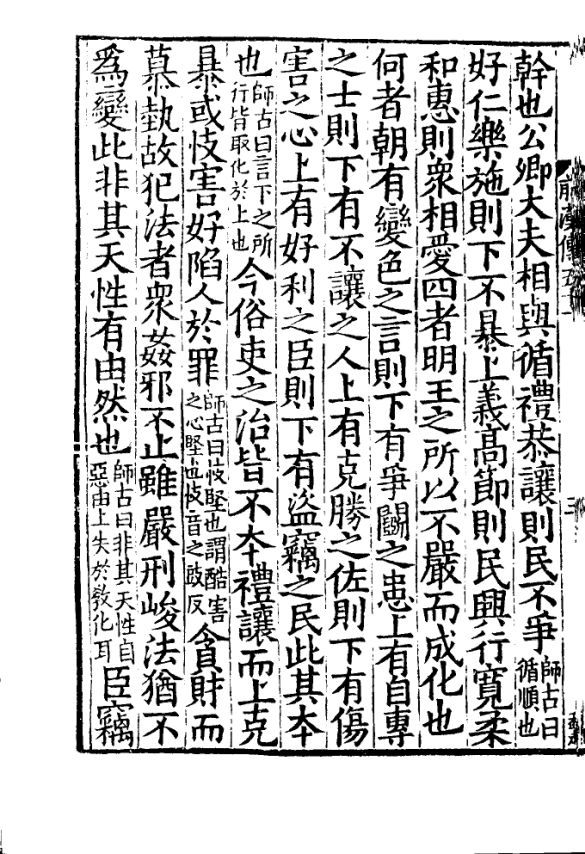 幹也公卿大夫相與循禮恭讓則民不爭師古曰循順也
好仁樂施則下不暴上義高節則民興行寬柔
和惠則衆相愛四者明王之所以不嚴而成化也
何者朝有變色之言則下有爭鬬之患上有自專
之士則下有不讓之人上有克勝之佐則下有傷
害之心上有好利之臣則下有盜竊之民此其夲
也師古曰言下之所行皆取化於上也今俗吏之治皆不夲禮讓而上克
暴或忮害好陷人於罪師古曰忮堅也謂酷害之心堅也忮音之豉反貪財而
慕埶故犯法者衆姦邪不止雖嚴刑峻法猶不
爲變此非其天性有由然也師古曰非其天性自惡由上失於敎化耳臣竊